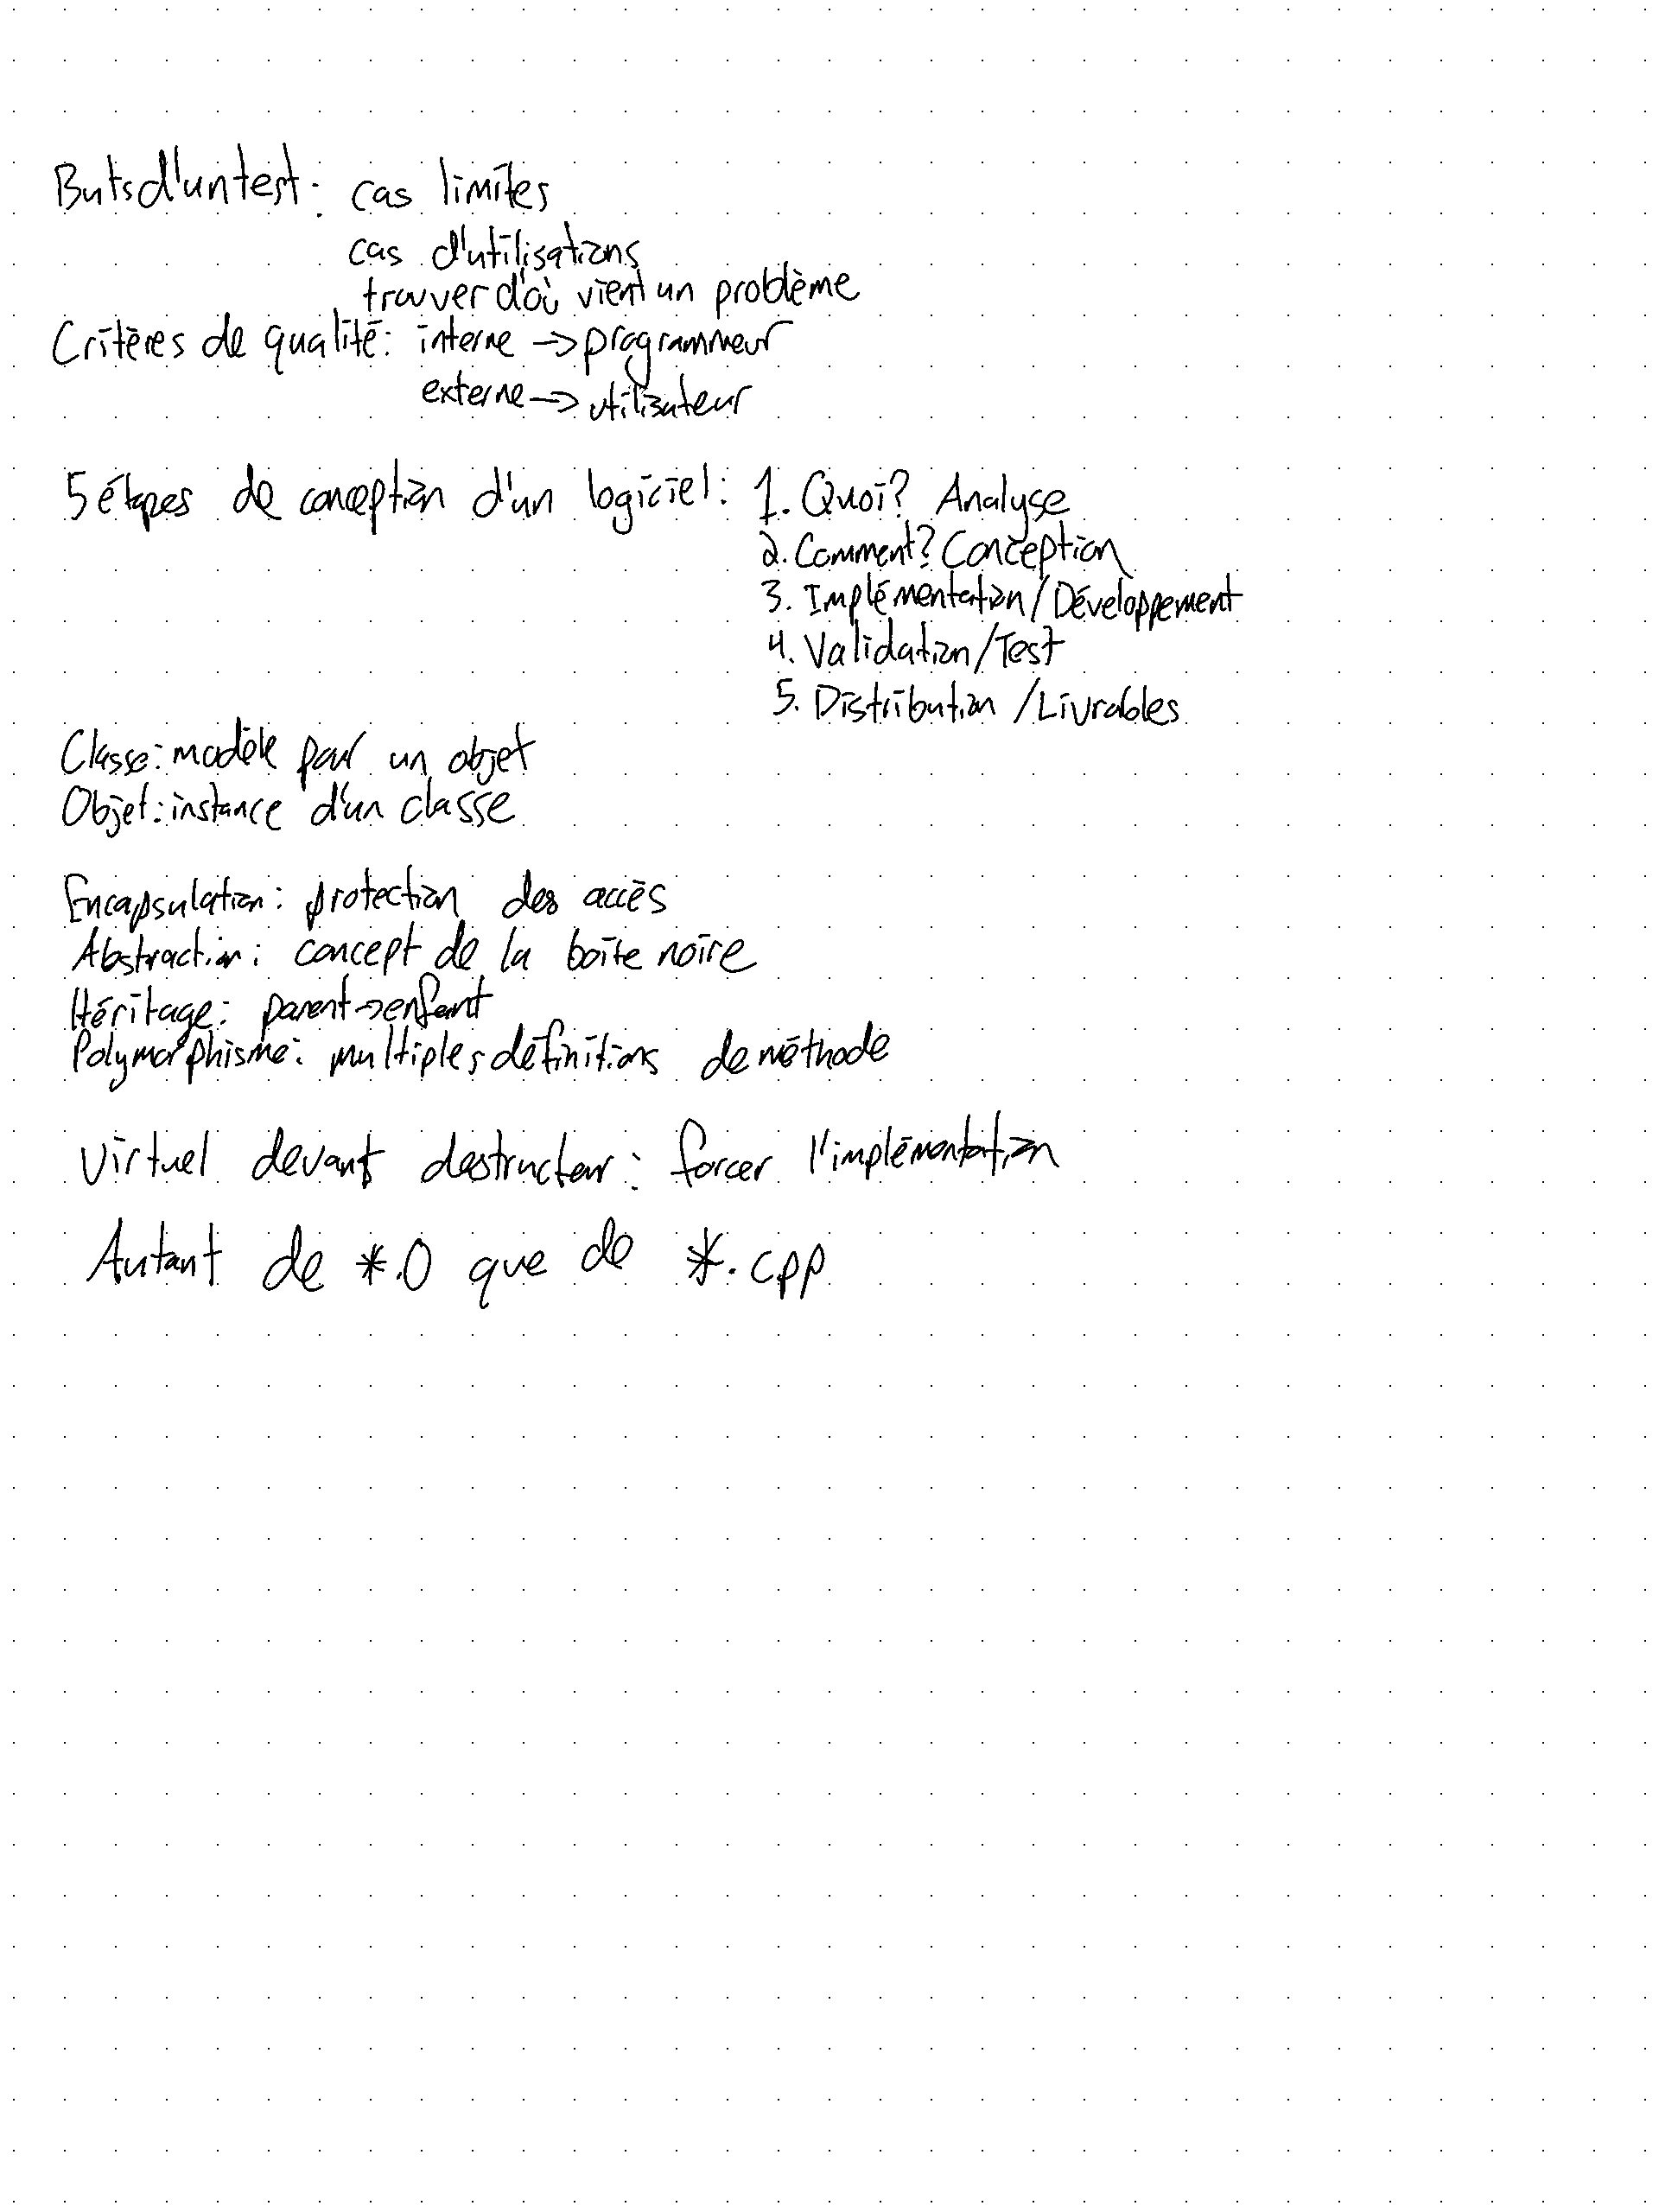 Buts d'un test: cas limites
cas d'utilisations
trouver d'où vient un problème
Critères de qualité: interne → programmeur
externe → utilisateur
5 étapes de conception d'un logiciel: 1. Quoi? Analyse
2. Comment? Conception
3. Implémentation/Développement
4. Validation/Test
5. Distribution/Livrables
Classe: modèle pour un objet
Objet: instance d'un classe
Encapsulation: protection des accès
Abstraction: concept de la boîte noire
Héritage: parent→enfant
Polymorphisme: multiples définitions de méthode
Virtuel devant destructeur: forcer l'implémentation
Autant de *.O que de *.cpp